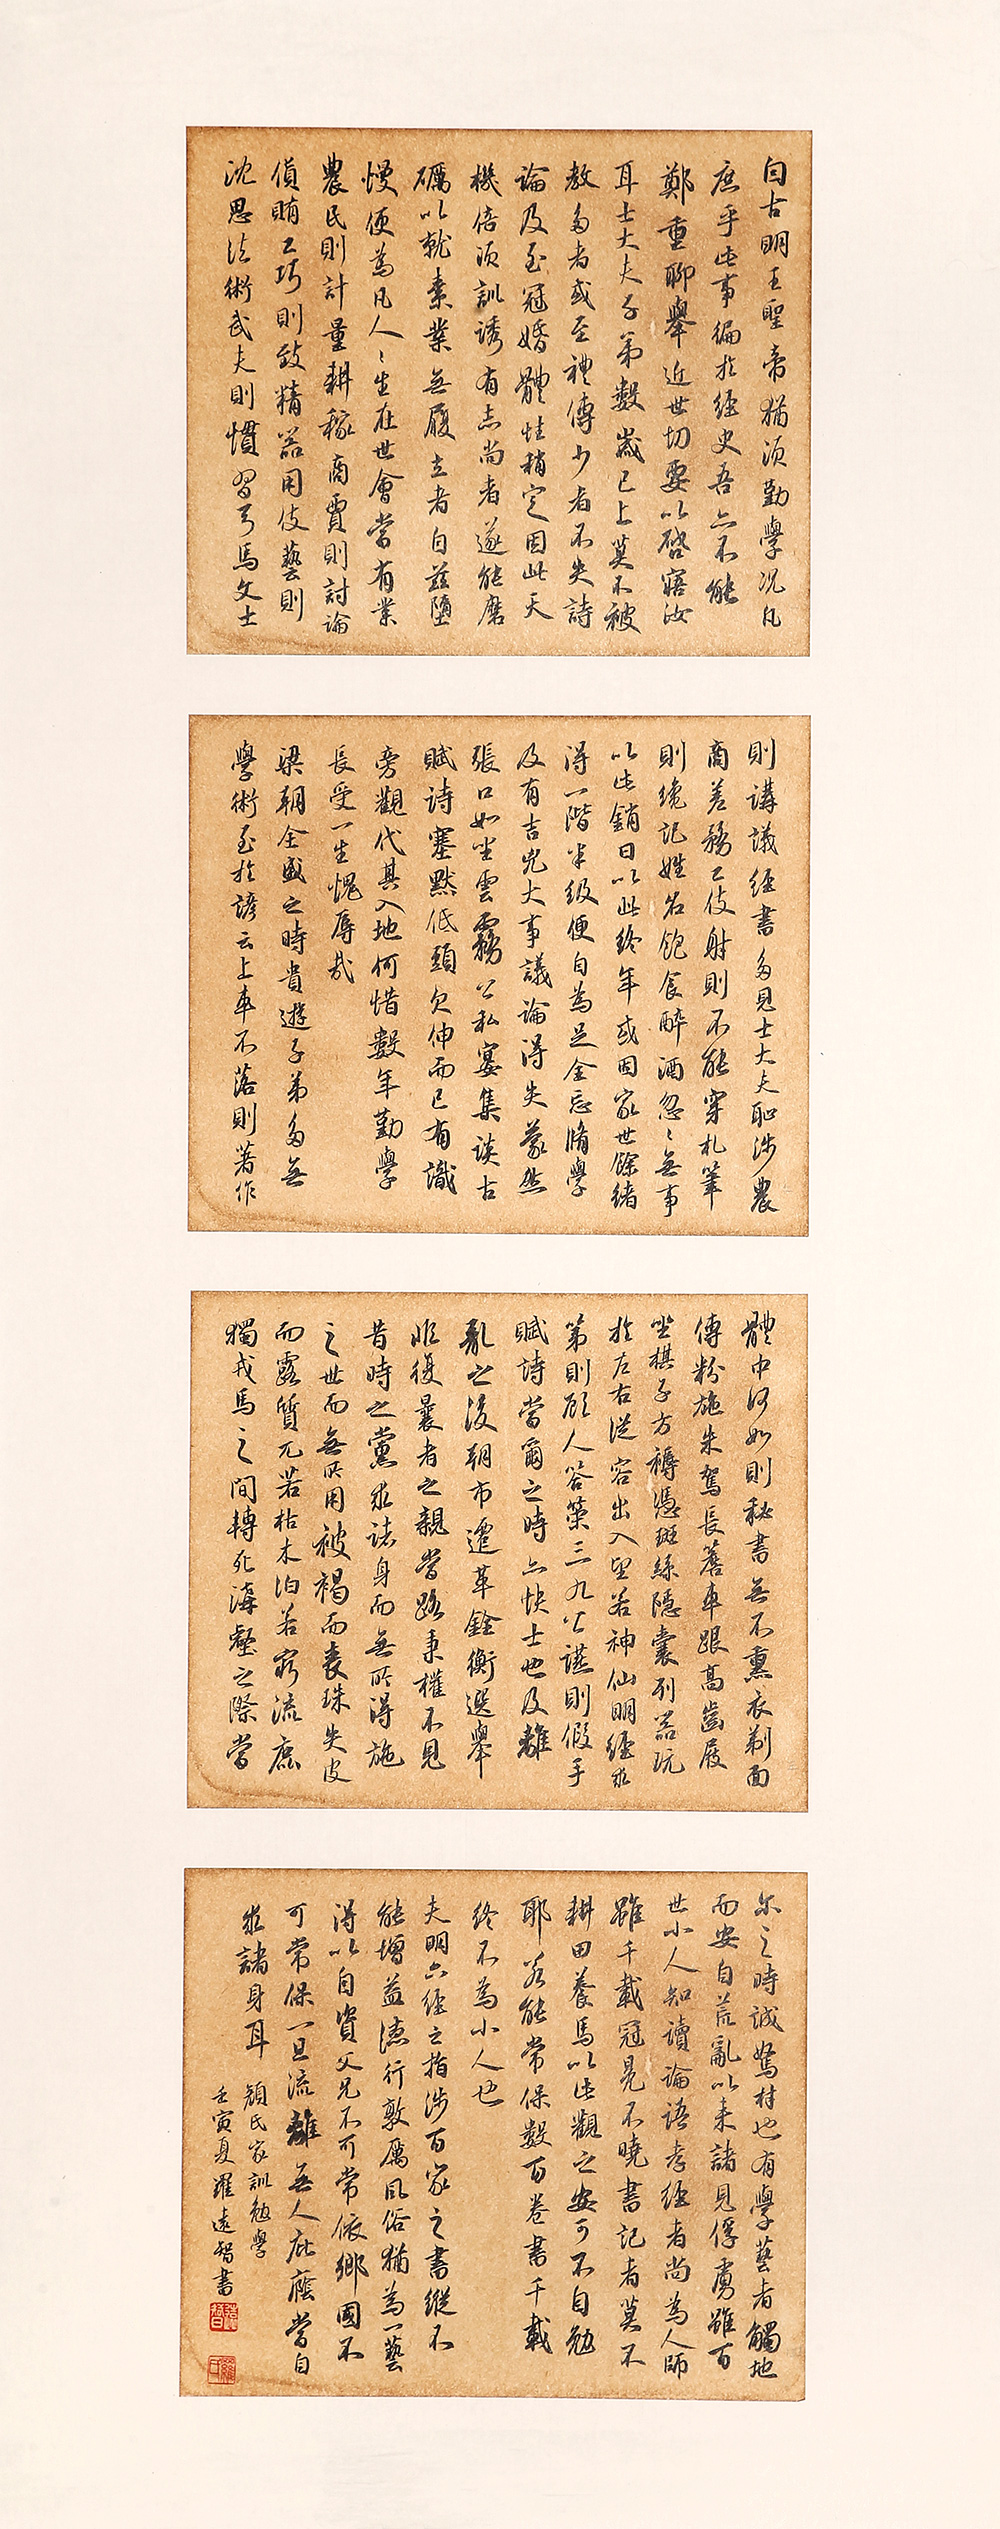 自古明王聖帝猶須勤學况凡
庶乎此事徧於經史吾亦不能
鄭重聊舉近世切要以啓寤汝
耳士大夫子弟數歲已上莫不被
教多者或至禮傳少者不失詩
論及至冠婚體性稍定因此天
機倍須訓誘有志尚者遂能磨
礪以就素業無履立者自茲墮
慢便為凡人人生在世會當有業
農民則計量耕稼商賈則討論
貨賄工巧則致精器用伎藝則
沈思法術武夫則慣習弓馬文士
則講議經書多見士大夫恥涉農
商羞務工伎射則不能穿札筆
則纔記姓名飽食醉酒忽忽無事
以此銷日以此終年或因家世餘緒
得一階半級便自為足全忘脩學
及有吉凶大事議論得失蒙然
張口如坐雲霧公私宴集談古
賦詩塞默低頭欠伸而已有識
旁觀代其入地何惜數年勤學
長受一生愧辱哉
梁朝全盛之時貴遊子弟多無
學術至於諺云上車不落則著作
體中何如則秘書無不熏衣剃面
傅粉施朱駕長簷車跟高齒屐
坐棋子方褥憑斑絲隱囊列器玩
於左右從容出入望若神仙明經求
第則顧人答策三九公讌則假手
賦詩當爾之時亦快士也及離
亂之後朝市遷革銓衡選舉
非復曩者之親當路秉權不見
昔時之黨求諸身而無所得施
之世而無所用被褐而喪珠失皮
而露質兀若枯木泊若窮流鹿
獨戎馬之間轉死溝壑之際當
尔之時誠駑材也有學藝者觸地
而安自荒亂以来諸見俘虜雖百
世小人知讀論語孝經者尚為人師
雖千載冠冕不曉書記者莫不
耕田養馬以此觀之安可不自勉
耶若能常保數百卷書千載
終不為小人也
夫明六經之指涉百家之書縱不
能增益德行敦厲風俗猶為一藝
得以自資父兄不可常依鄉國不
可常保一旦流離無人庇廕當自
求諸身耳
顏氏家訓勉學
壬寅夏羅遠智書